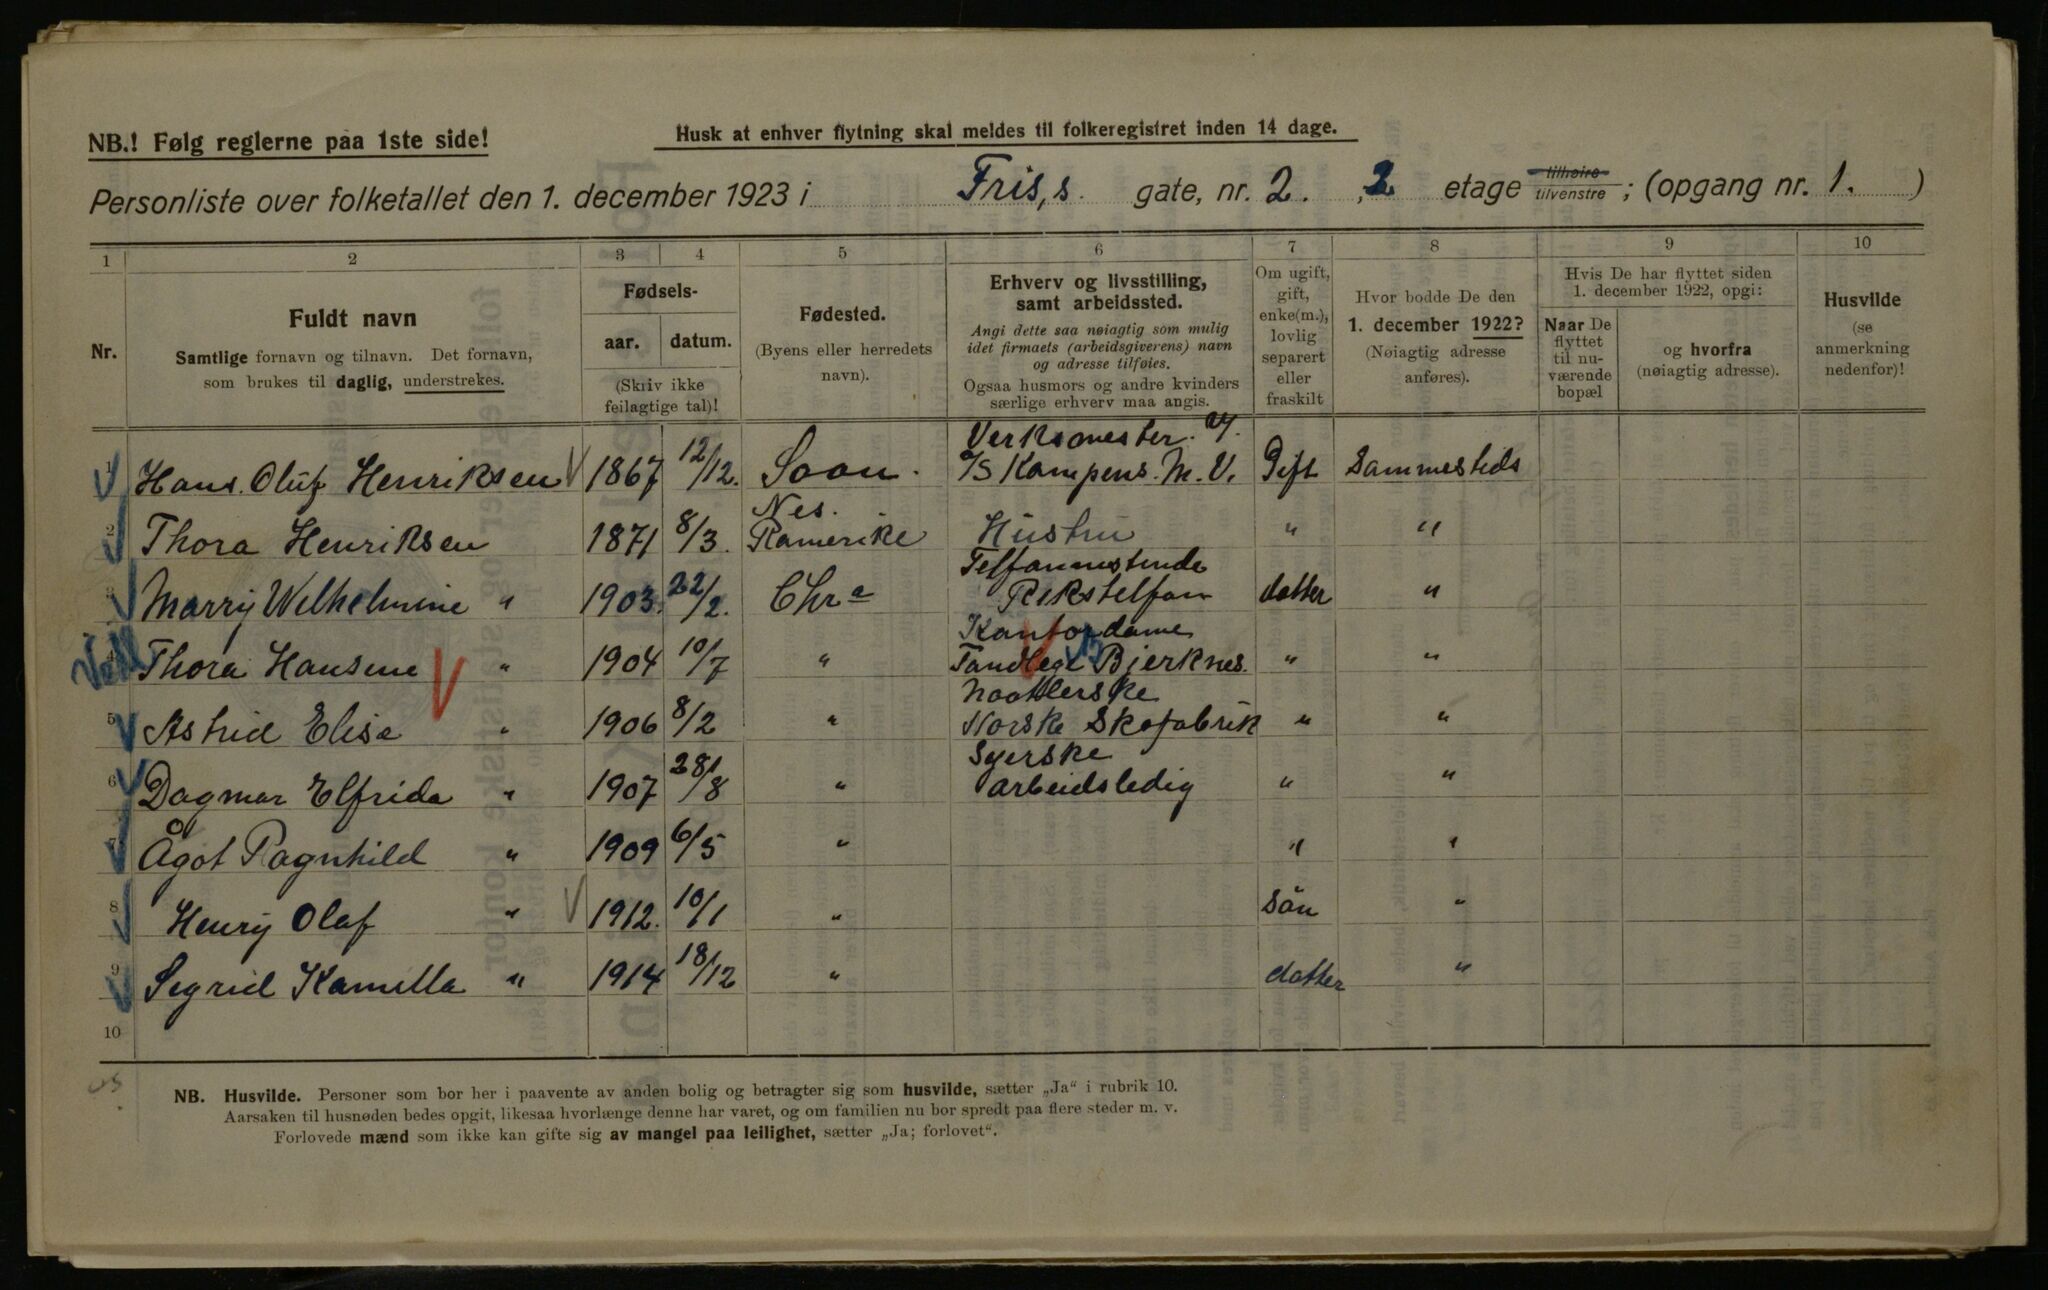 NB.! Følg reglerne paa 1ste side!
Husk at enhver flytning skal meldes til folkeregistret inden 14 dage.
Personliste over folketallet den 1. december 1923 i Fris,s gate, nr. 2. , 2 etage tilhøire tilvenstre ; (opgang nr. 1. )
1 2 3 4 5 6 7 8 9 10
Nr.
Fuldt navn
Samtlige fornavn og tilnavn. Det fornavn,
som brukes til daglig, understrekes.
Fødsels-
aar. datum.
(Skriv ikke
feilagtige tal)!
Fødested.
(Byens eller herredets
navn).
Erhverv og livsstilling,
samt arbeidssted.
Angi dette saa nøiagtig som mulig
idet firmaets (arbeidsgiverens) navn
og adresse tilføies.
Ogsaa husmors og andre kvinders
særlige erhverv maa angis.
Om ugift,
gift,
enke(m.),
lovlig
separert
eller
fraskilt
Hvor bodde De den
1. december 1922?
(Nøiagtig adresse
anføres).
Hvis De har flyttet siden
1. december 1922, opgi:
Naar De
flyttet
til nu-
værende
bopæl
og hvorfra
(nøiagtig adresse).
Husvilde
(se
anmerkning
nedenfor)!
Verksmester.
1 Hans. Oluf Henriksen 1867 12/12. Soon. A/S Kampens. M. V. Gift Sammesteds
Nes.
2 Thora Henriksen 1871 8/3. Romerike Hustru " "
Telfonnistinde
3 Marry Wilhelmine " 1903. 22/2. Chr a Rikstelfon datter "
Kontordame
4 Thora Hansine " 1904 10/7 " Tandlege Bjerknes. " "
Naatlerske
5 Astrid Elise " 1906 8/2 " Norske Skofabrik " "
Syerske
6 Dagmar Elfrida " 1907 28/8 " arbeidsledig " "
7 Ågot Ragnhild " 1909 6/5 " " "
8 Henry Olaf " 1912. 10/1 " Sön "
9 Sigrid Kamilla " 1914 18/12 " datter "
10
NB. Husvilde. Personer som bor her i paavente av anden bolig og betragter sig som husvilde, sætter „Ja“ i rubrik 10.
Aarsaken til husnøden bedes opgit, likesaa hvorlænge denne har varet, og om familien nu bor spredt paa flere steder m. v.
Forlovede mænd som ikke kan gifte sig av mangel paa leilighet, sætter „Ja; forlovet“.